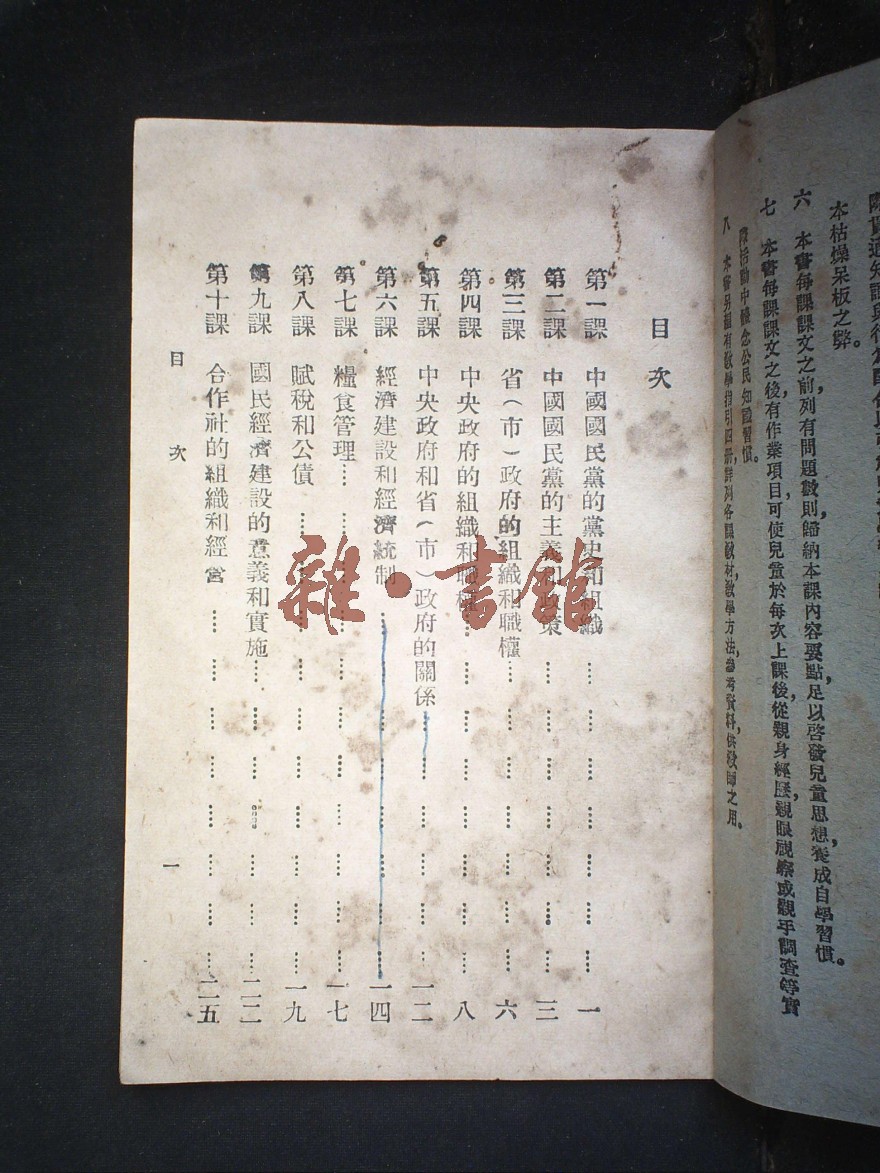 本枯燥呆板之弊。
六　本書每課課文之前列有問題數則歸納本課內容要點足以啓發兒童思想，養成自學習慣。
七　本書每課課文之後有作業項目可使兒童於每次上課後從親身經歷，親眼視察或親手調查等實
際活動中體念公民知識習慣。
八　本書另編有教學指引四册，詳列各課教材教學方法，參考資料，供教師之用。
目次
第一課　中國國民黨的黨史和組織……一
第二課　中國國民黨的主義和政策……三
第三課　省（市）政府的組織和職權……六
第四課　中央政府的組織和職權……八
第五課　中央政府和省（市）政府的關係……一二
第六課　經濟建設和經濟統制……一四
第七課　糧食管理……一七
第八課　賦稅和公債……一九
第九課　國民經濟建設的意義和實施……二二
第十課　合作社的組織和經營……二五
目次
一
雜·書館